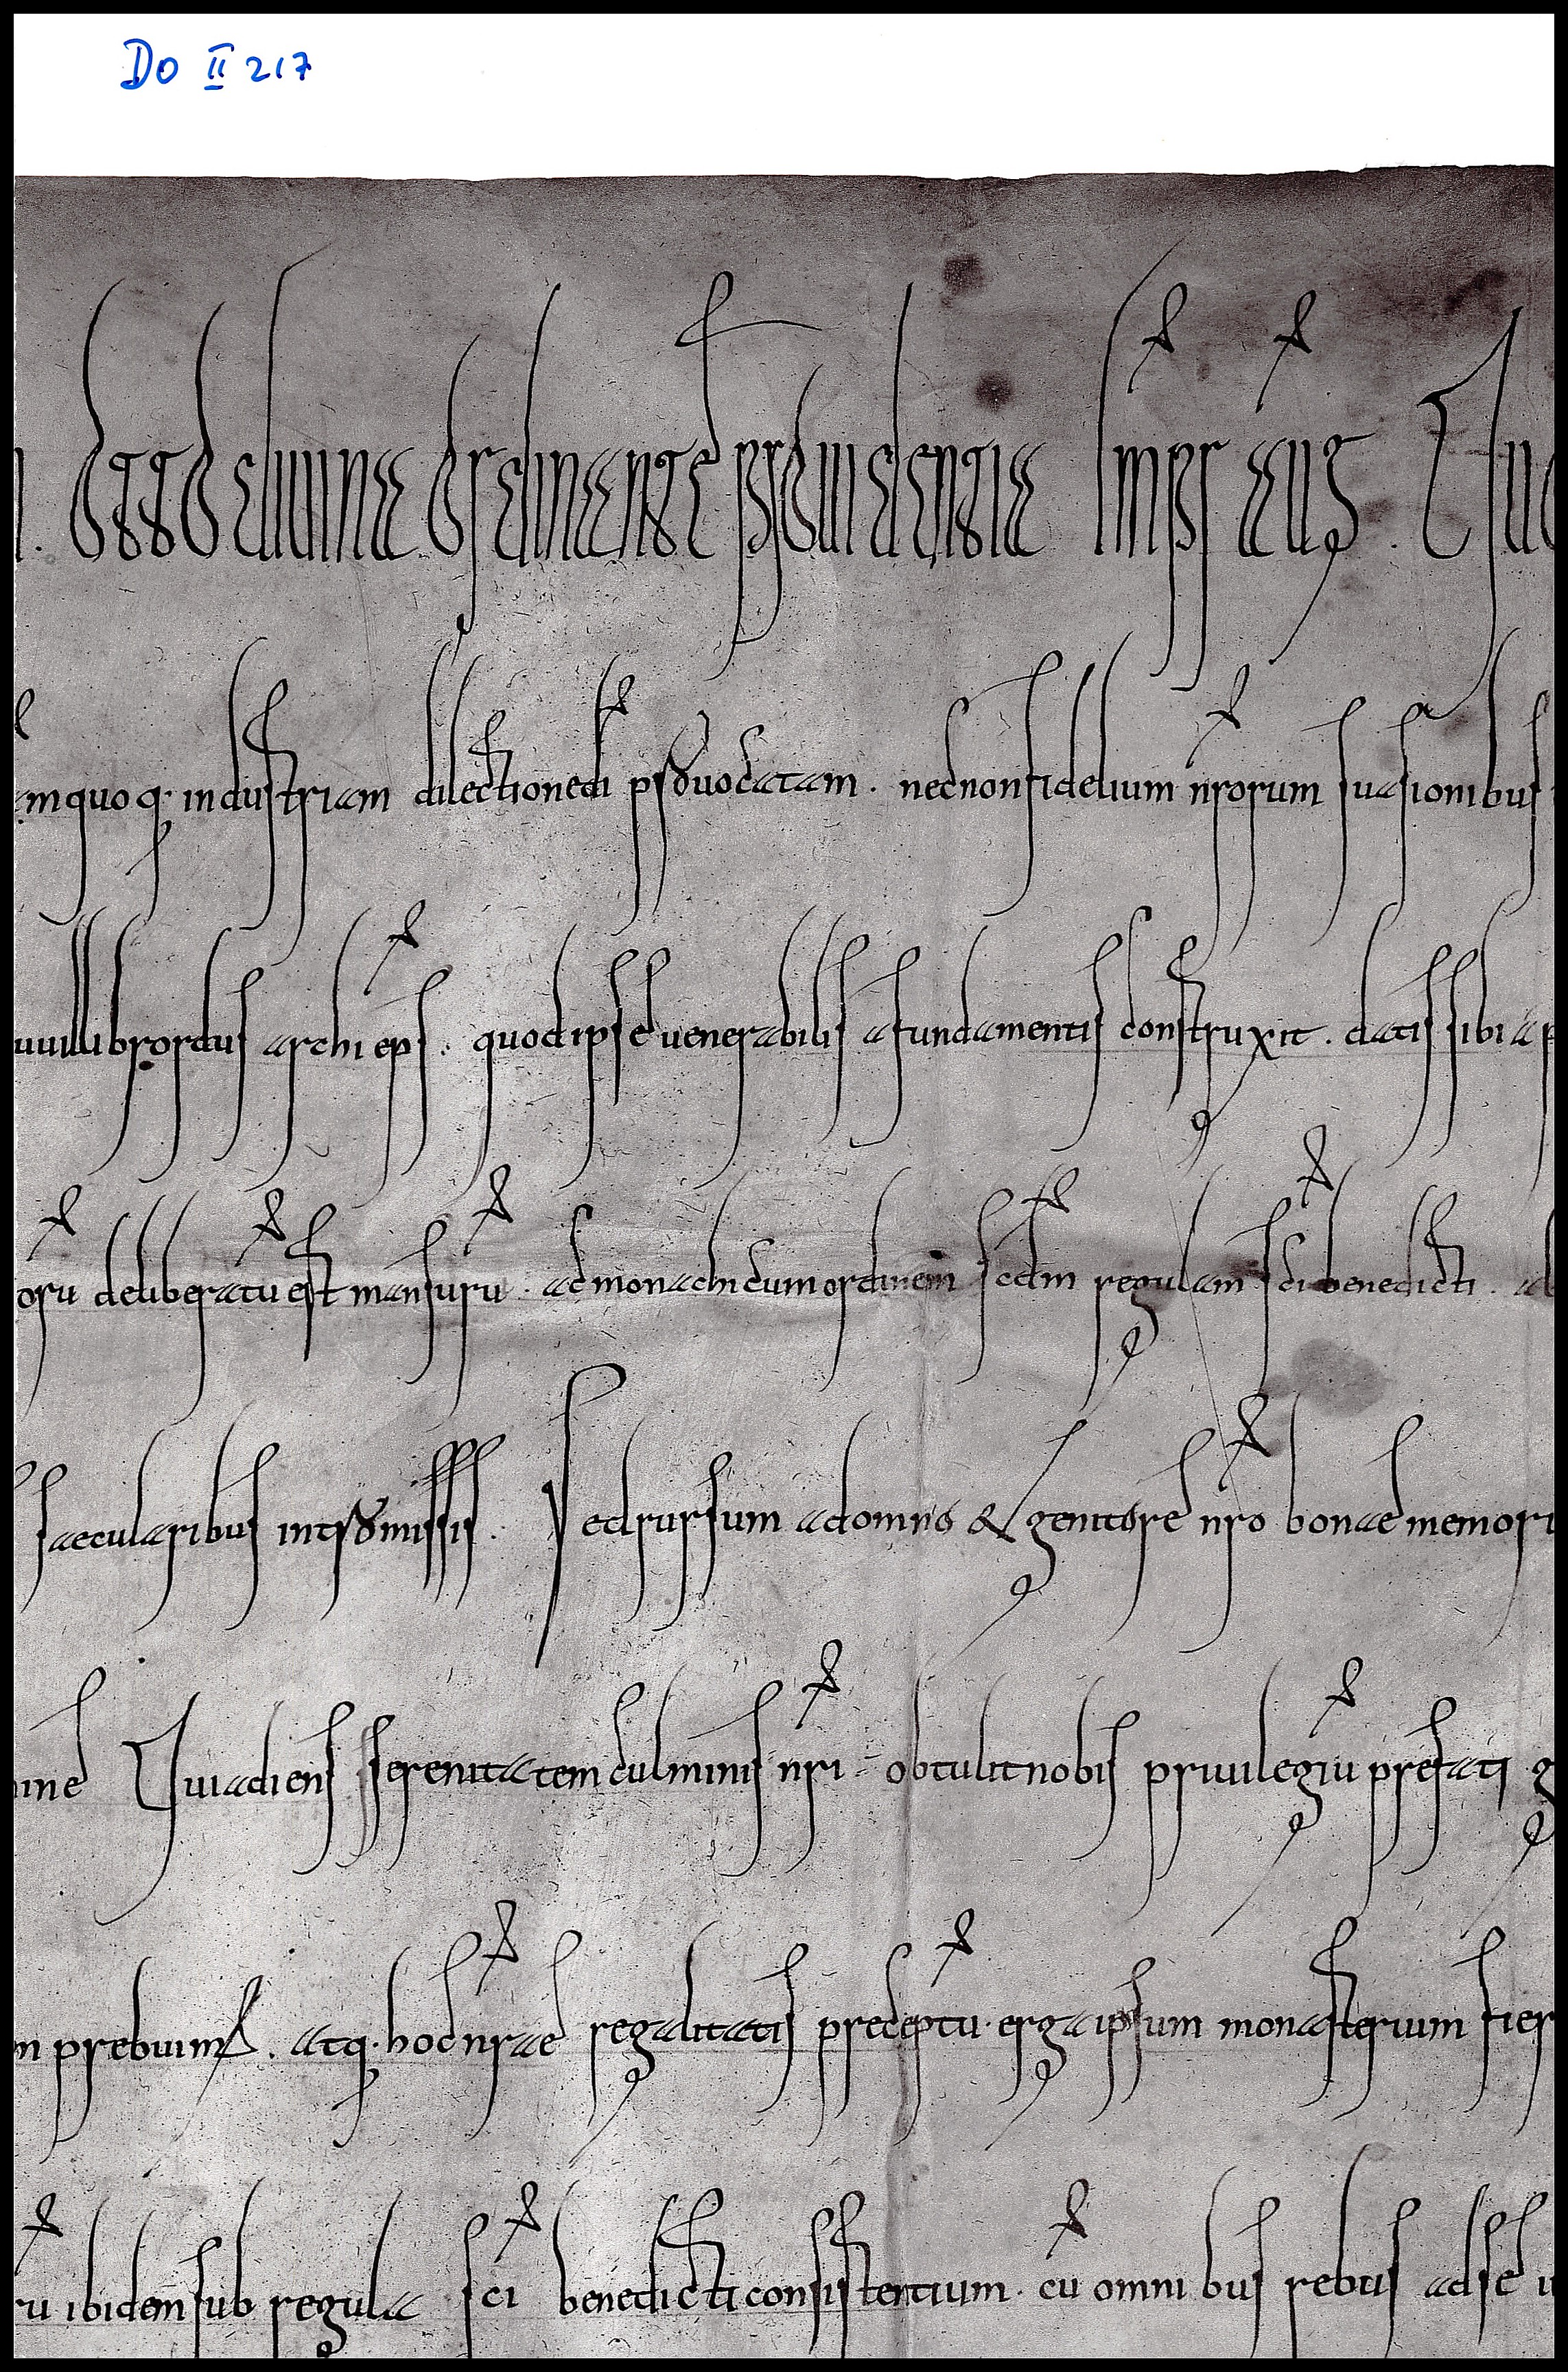 DO II 217
. Otto diuina ordinante prouidentia Impr aug. Quo
mquoq. industriam dilectione di prouocatam. necnon fidelium nrorum suasionibus
uuillibrordus archi eps. quod ipse uenerabilis a fundamentis construxit. datis sibi ap
oru deliberatu est mansuru. ad monachicum ordinem scdm regulam sci benedicti. ab
saecularibus intromissis. Sed rursum a domno & genitore nro bonae memori
ine Qui adiens serenitatem culminis nri obtulit nobis priuilegiu prefati g
m prebuimus. atq. hoc nrae regalitatis preceptu erga ipsum monasterium fier
ru ibidem sub regula sci benedicti consistentium. cu omnibus rebus ad se